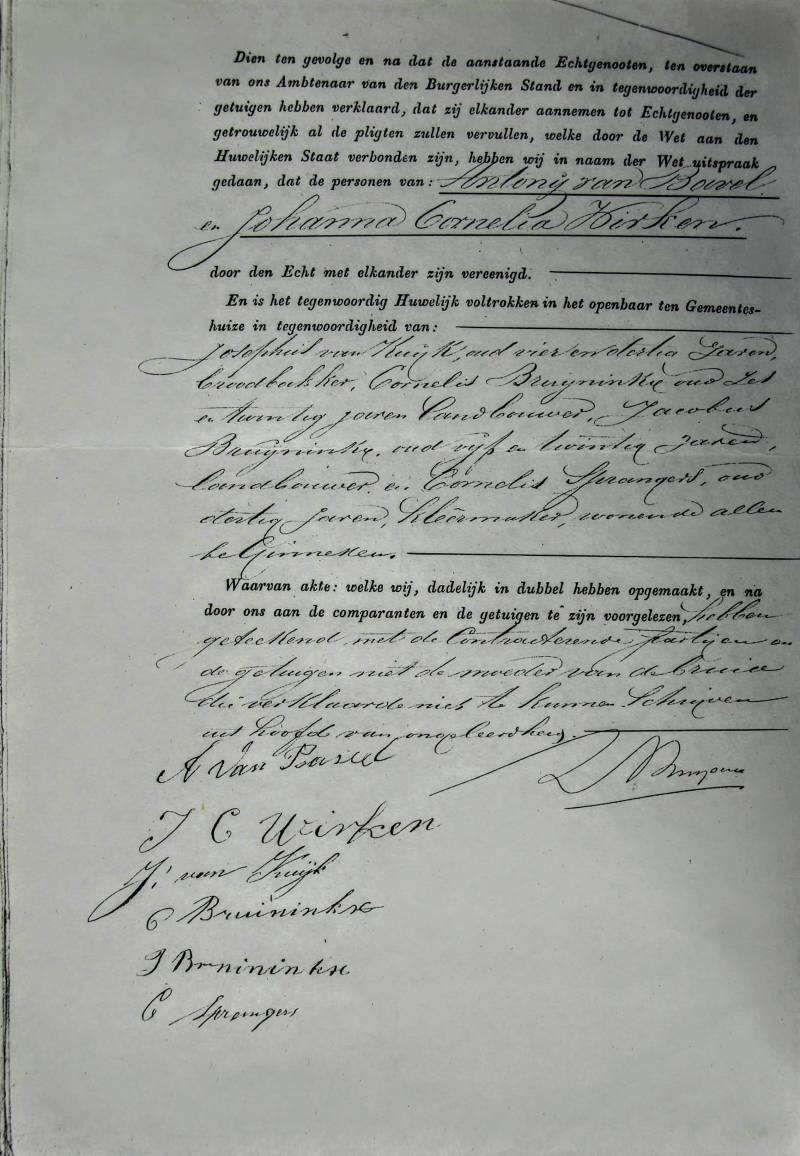 Dien ten gevolge en na dat de aanstaande Echtgenooten, ten overstaan
van ons Ambtenaar van den Burgerlijken Stand en in tegenwoordigheid der
getuigen hebben verklaard, dat zij elkander aannemen tot Echtgenooten, en
getrouwelijk al de pligten zullen vervullen, welke door de Wet aan den
Huwelijken Staat verbonden zijn, hebben wij in naam der Wet uitspraak
gedaan, dat de personen van: Antonij van Bavel
en Johanna Cornelia Wirken.
door den Echt met elkander zijn vereenigd.
En is het tegenwoordig Huwelijk voltrokken in het openbaar ten Gemeentes-
huize in tegenwoordigheid van:
Josephus van Kuijk, oud vier en dertig Jaren,
broodbakker, Cornelis Bruyninkx oud zes
en twintig jaren Landbouwer, Jacobus
Bruijninkx, oud vijf en twintig Jaren,
landbouwer, en Cornelis Sprangers, oud
dertig Jaren, kleermaker, wonende allen
te Ginneken.
Waarvan akte: welke wij, dadelijk in dubbel hebben opgemaakt, en na
door ons aan de comparanten en de getuigen te zijn voorgelezen, hebben
geteekend met de Contracterende partijen en
de getuigen niet de moeder van de bruid
die verklaarde niet te kunnen Schrijven
uit hoofde van ongeleerdheid.
A Van Bavel
J C Wirken
J. van Kuijk
C Bruininkx
J Bruininkx
C Sprangers